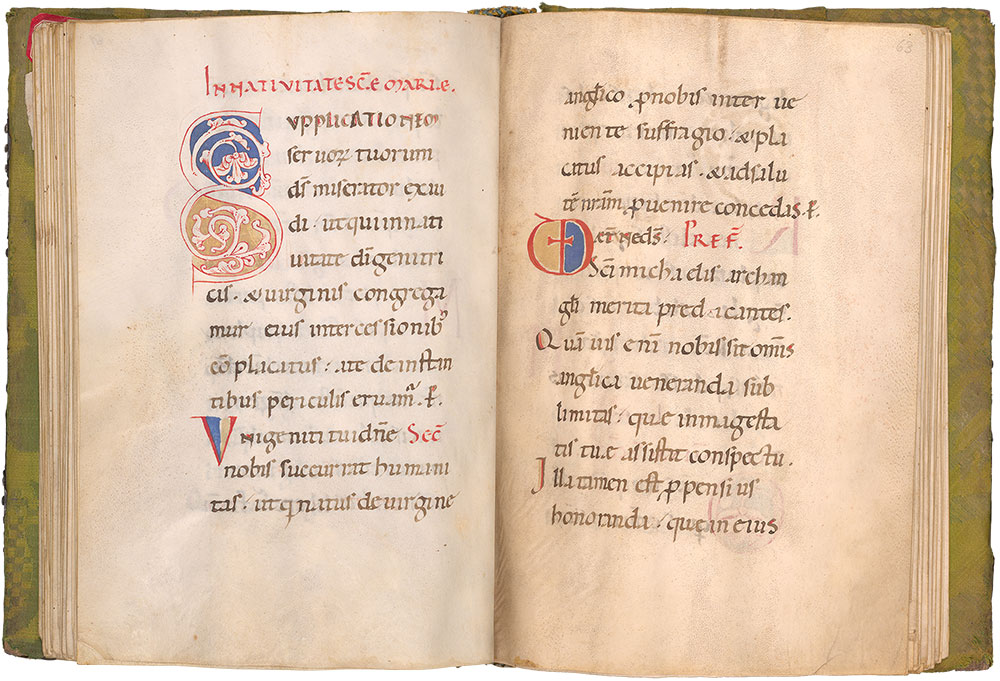 IN NATIVITATE SCE MARIE.
SUPPLICATIONEM
seruorum tuorum
ds miserator exau
di · ut qui in nati
uitate di genitri
cis · & uirginis congrega
mur · eius intercessionib;
coplacatus · a te de instan
tibus periculis eruam · P.
Unigeniti tui dne Sec
nobis succurrat humani
tas · ut q natus de uirgine
63
anglico p nobis inter ue
niente suffragio · & pla
catus accipias · & ad salu
te nram puenire concedas · P.
VD aetne ds. PREF.
Sci michaelis archan
gli merita predicantes.
Quauis eni nobis sit omis
anglica ueneranda sub
limitas · que in magesta
tis tue assistit conspectu.
Illa tamen est ppensius
honoranda · que in eius